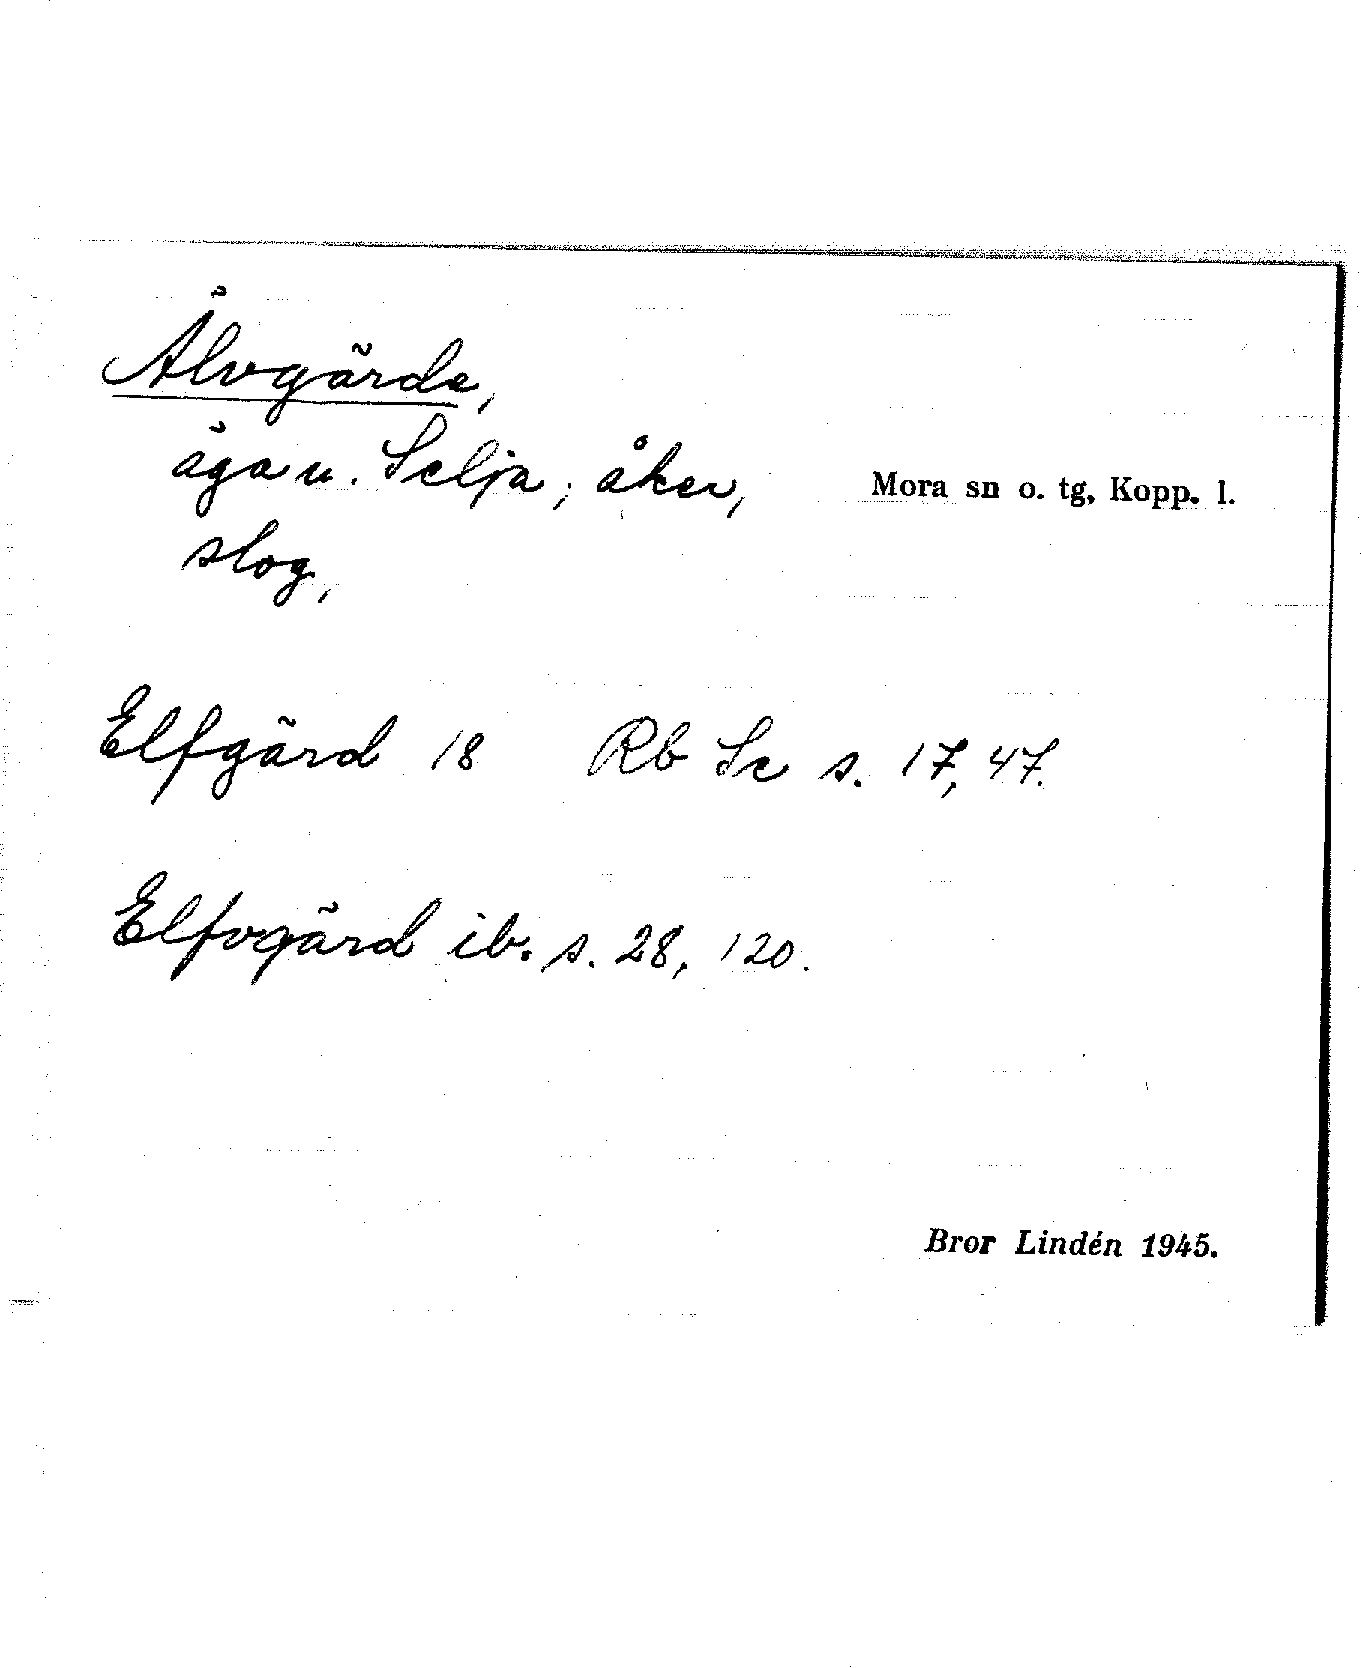 Älvgärde,
äga u. Selja; åker,
Mora sn o. tg, Kopp. l.
slog,
Elfgärd 18 Rb Se s. 17, 47.
Elfvgärd ib. s. 28, 120.
Bror Lindén 1945.